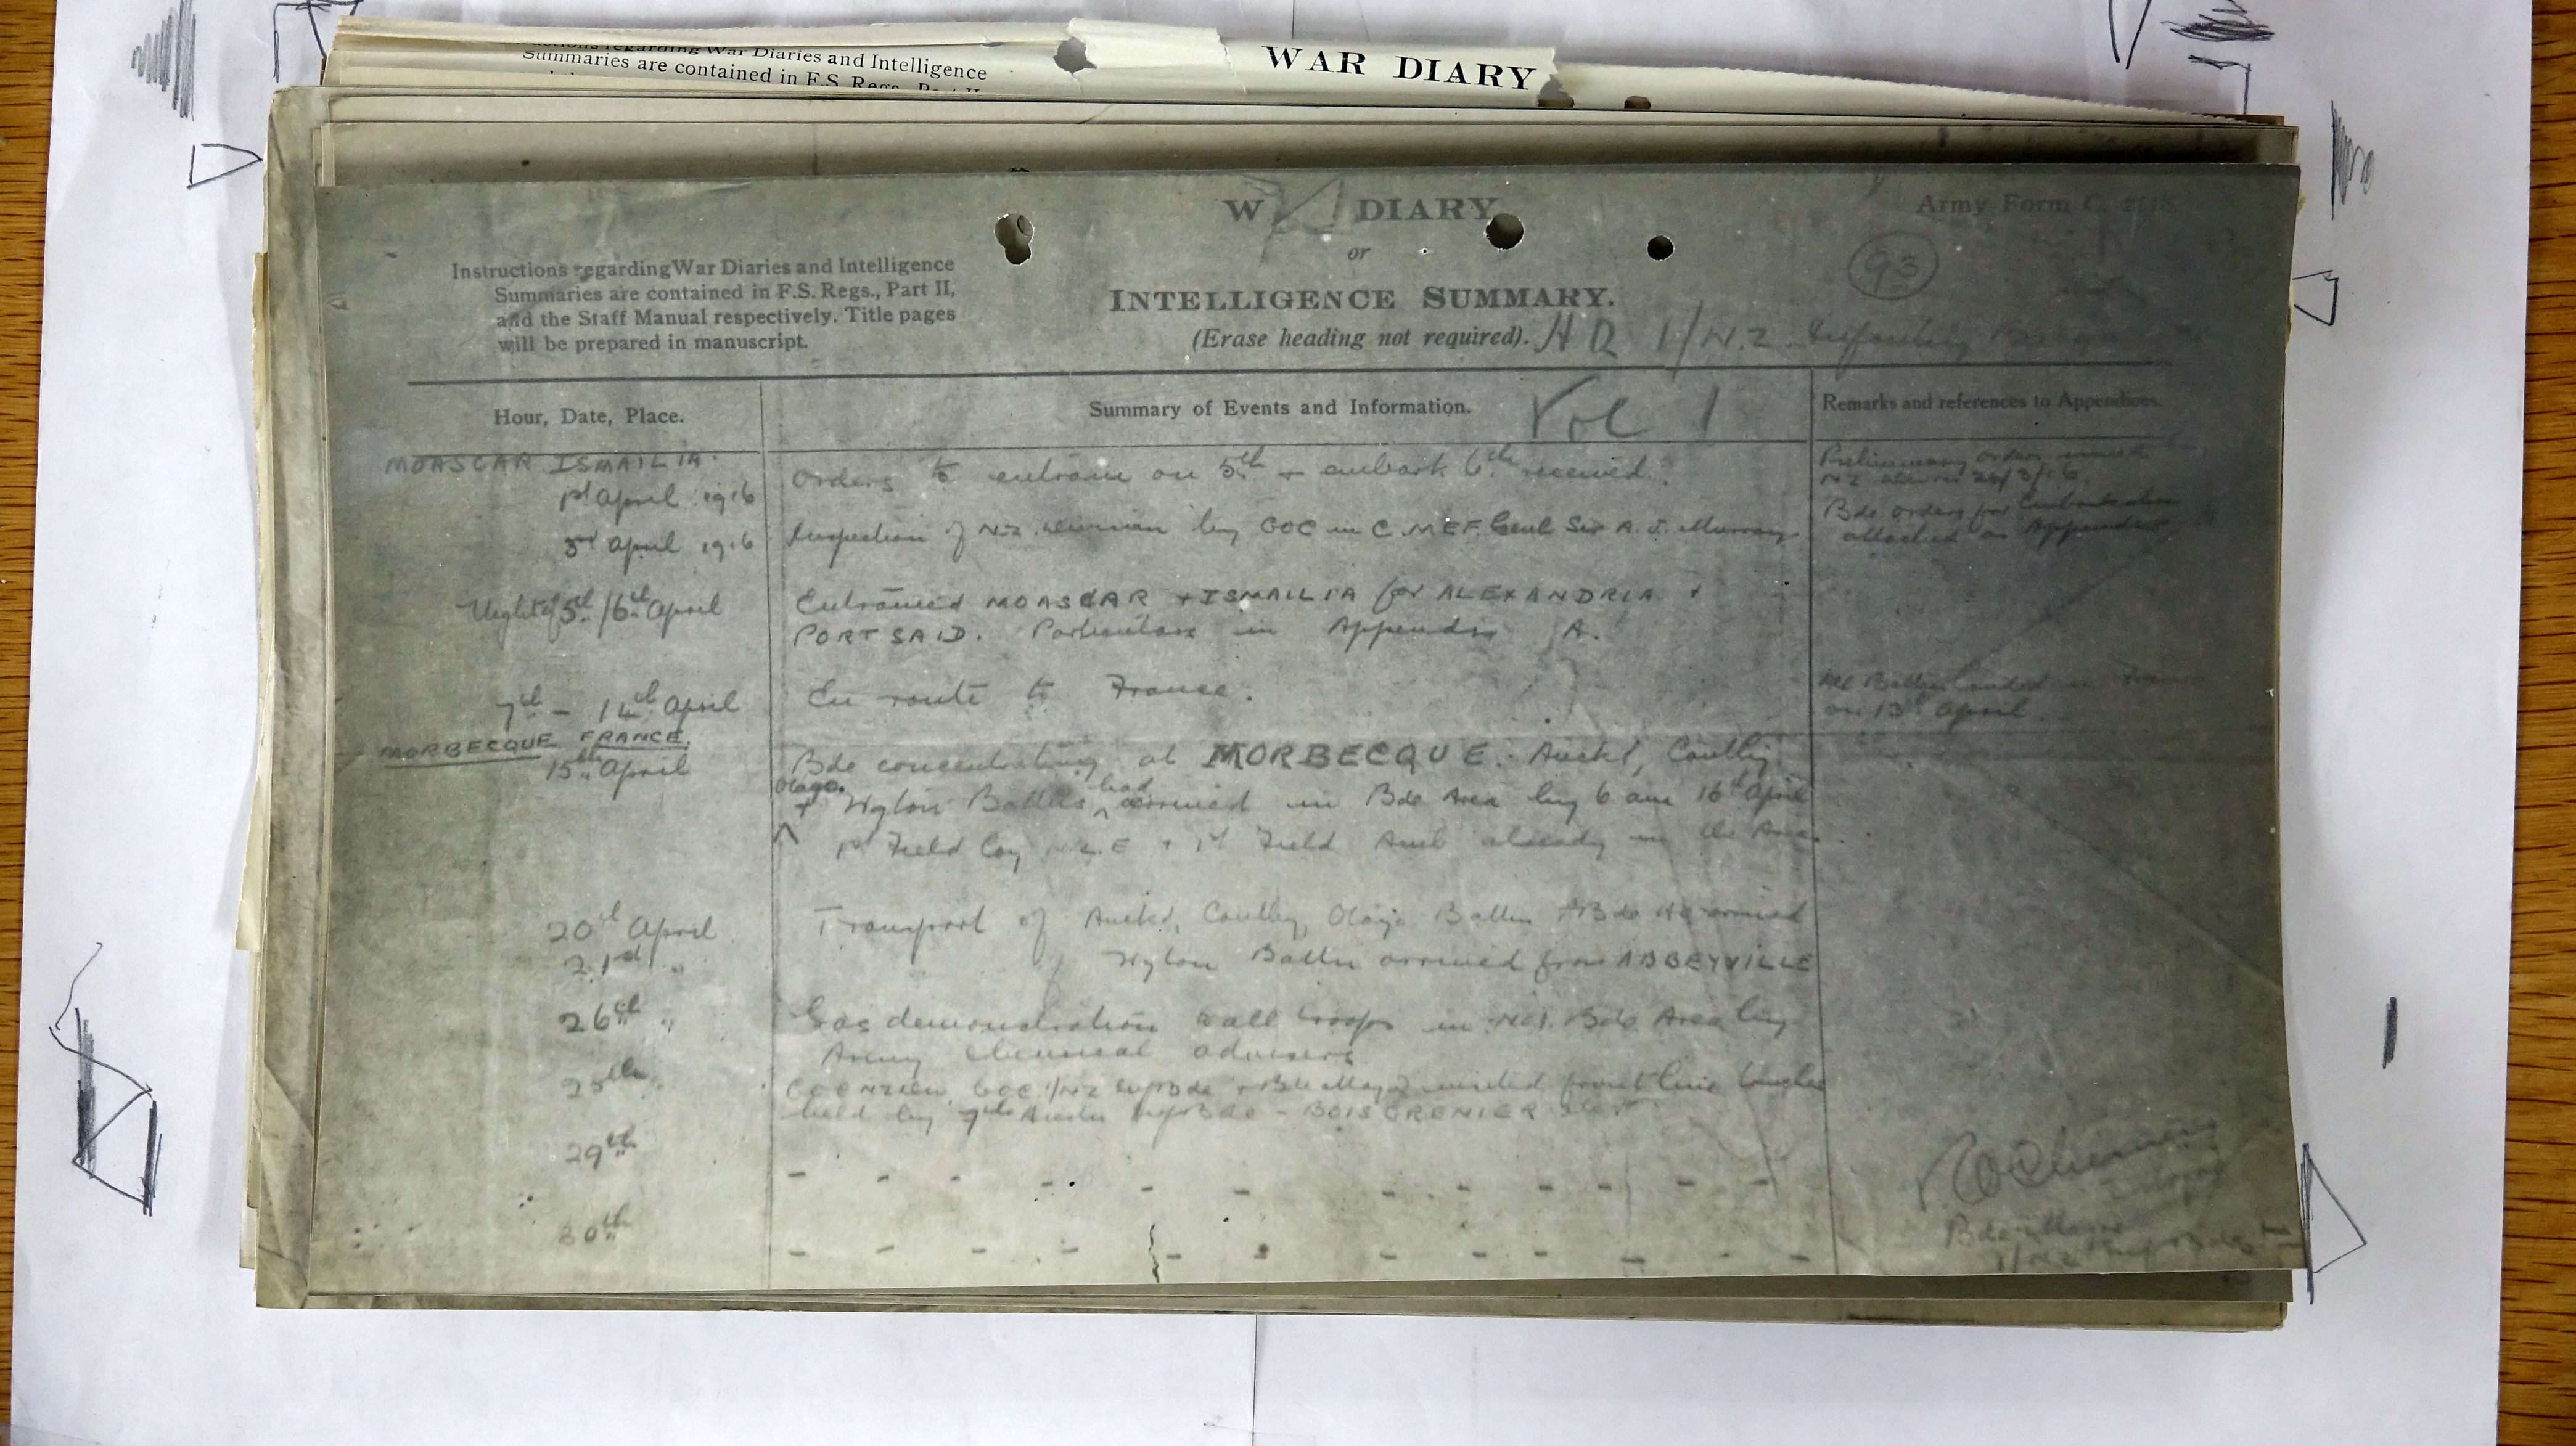 Summaries are contained in F.S. Regs., Part II
WAR DIARY
W DIARY
Army Form C. 2118
or
93
Instructions regarding War Diaries and Intelligence
Summaries are contained in F.S. Regs., Part II,
and the Staff Manual respectively. Title pages
will be prepared in manuscript.
INTELLIGENCE SUMMARY.
(Erase heading not required). HQ 1/N.Z. Infantry
Hour, Date, Place.
Summary of Events and Information. Vol 1
Remarks and references to Appendices.
MOASCAR ISMAILIA.
1st April 1916
Orders to entrain on 5th + embark 6th received.
Preliminary orders issued
NZ 26/3/16.
3rd April 1916
Inspection of N.Z. Division by GOC in C. MEF. Genl Sir A. J. Murray
Bde orders for Embarkation
attached as Appendix
Night of 5th/6th April
Entrained MOASCAR + ISMAILIA for ALEXANDRIA +
PORT SAID. Particulars in Appendix A.
7th - 14th April
En route to France.
All Battns landed in France
on 13th April
MORBECQUE FRANCE.
15th April
Bde concentrating at MORBECQUE. Auckd, Cantby
Otago.
+ Wgton Battns had arrived in Bde Area by 6 am 16th April
1st Field Coy N.Z.E + 1st Field Amb already in the Area.
20th April
Transport of Auckd, Cantby, Otago Battn + Bde HQ arrived
21st "
Wgton Battn arrived from ABBEYVILLE
26th "
Gas demonstration to all troops in No 1. Bde Area by
Army Chemical advisers
GOC 1/NZ Inf Bde + Bde Major visited front line trenches
held by 7th Austn Inf Bde - BOIS GRENIER
29th
- - - - - - - - - - - -
30th
- - - - - - - - - - - -
Major
Bde Major
1/NZ Inf Bde